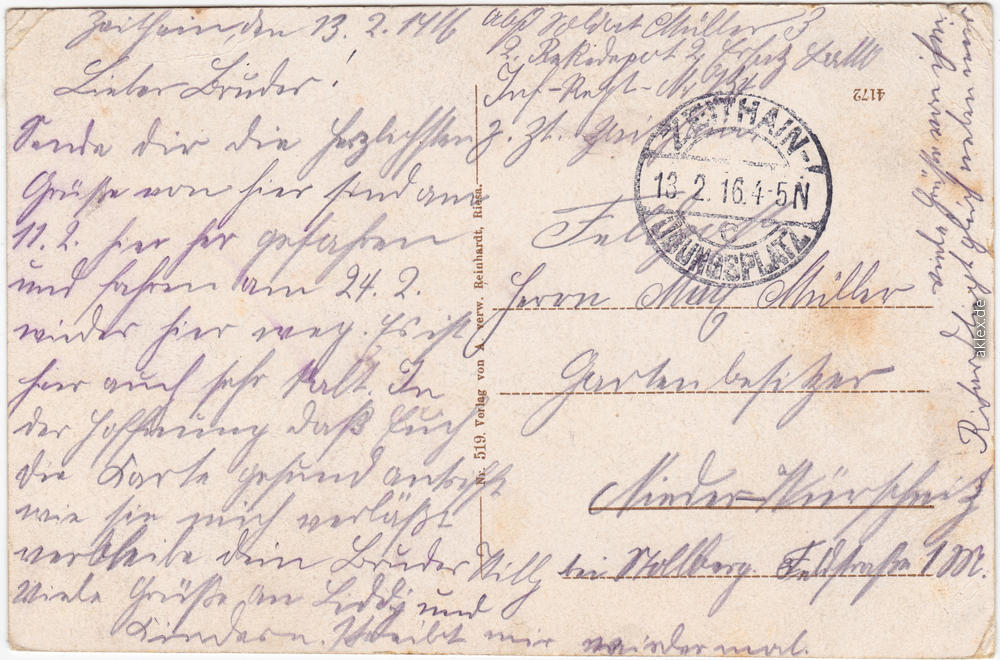 Zeithain, den 13. 2. 1916
Lieber Bruder!
Sende dir die herzlichsten
Grüße von hier sind am
11. 2. hier her gefahren
und fahren am 24. 2.
wider hier weg. Es ist
hier auch sehr kalt. In
der Hoffnung daß Euch
die Karte gesund antrifft
wie sie mich verläßt
verbleibe dein Bruder Willy
Viele Grüße an Liddy und
Kindern. Schreibt mir wiedermal.
Abs Soldat Müller 3
2. Rekrdepot 2. Ersatz Batt
Inf-Regt-Nr
z. Zt. Zeithain
4172
ZEITHAIN-
13. 2. 16. 4-5 N
c
ÜBUNGSPLATZ
Herrn Müller
Gartenbesitzer
Nieder-Würschnitz
bei Stollberg. Feldstraße 1 M.
Nr. 519. Verlag von A. verw. Reinhardt, Riesa.
akiex.de